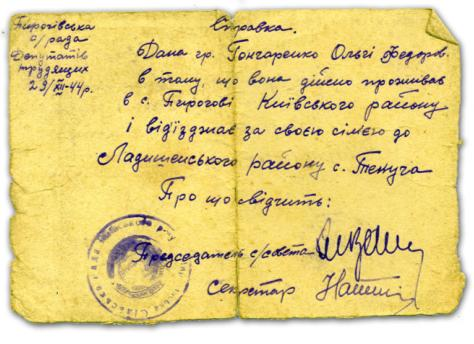 Пирогівська
с/рада
Депутатів
трудящих
29/XII-44р.
Справка.
Дана гр. Гончаренко Ользі Федоров.
в тому, що вона дійсно проживає
в с. Пирогові Київського району
і від'їзджає за своєю сім'єю до
Ладишенського району с. Тепуча
Про що свідчить:
Председатель с/совета
Секретар